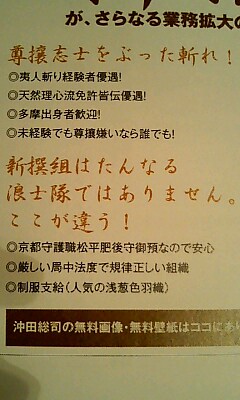 が、さらなる業務拡大の
尊攘志士をぶった斬れ!
◎夷人斬り経験者優遇!
◎天然理心流免許皆伝優遇!
◎多摩出身者歓迎!
◎未経験でも尊攘嫌いなら誰でも!
新撰組はたんなる
浪士隊ではありません。
ここが違う!
◎京都守護職松平肥後守御預なので安心
◎厳しい局中法度で規律正しい組織
◎制服支給(人気の浅葱色羽織)
沖田総司の無料画像・無料壁紙はココにあり